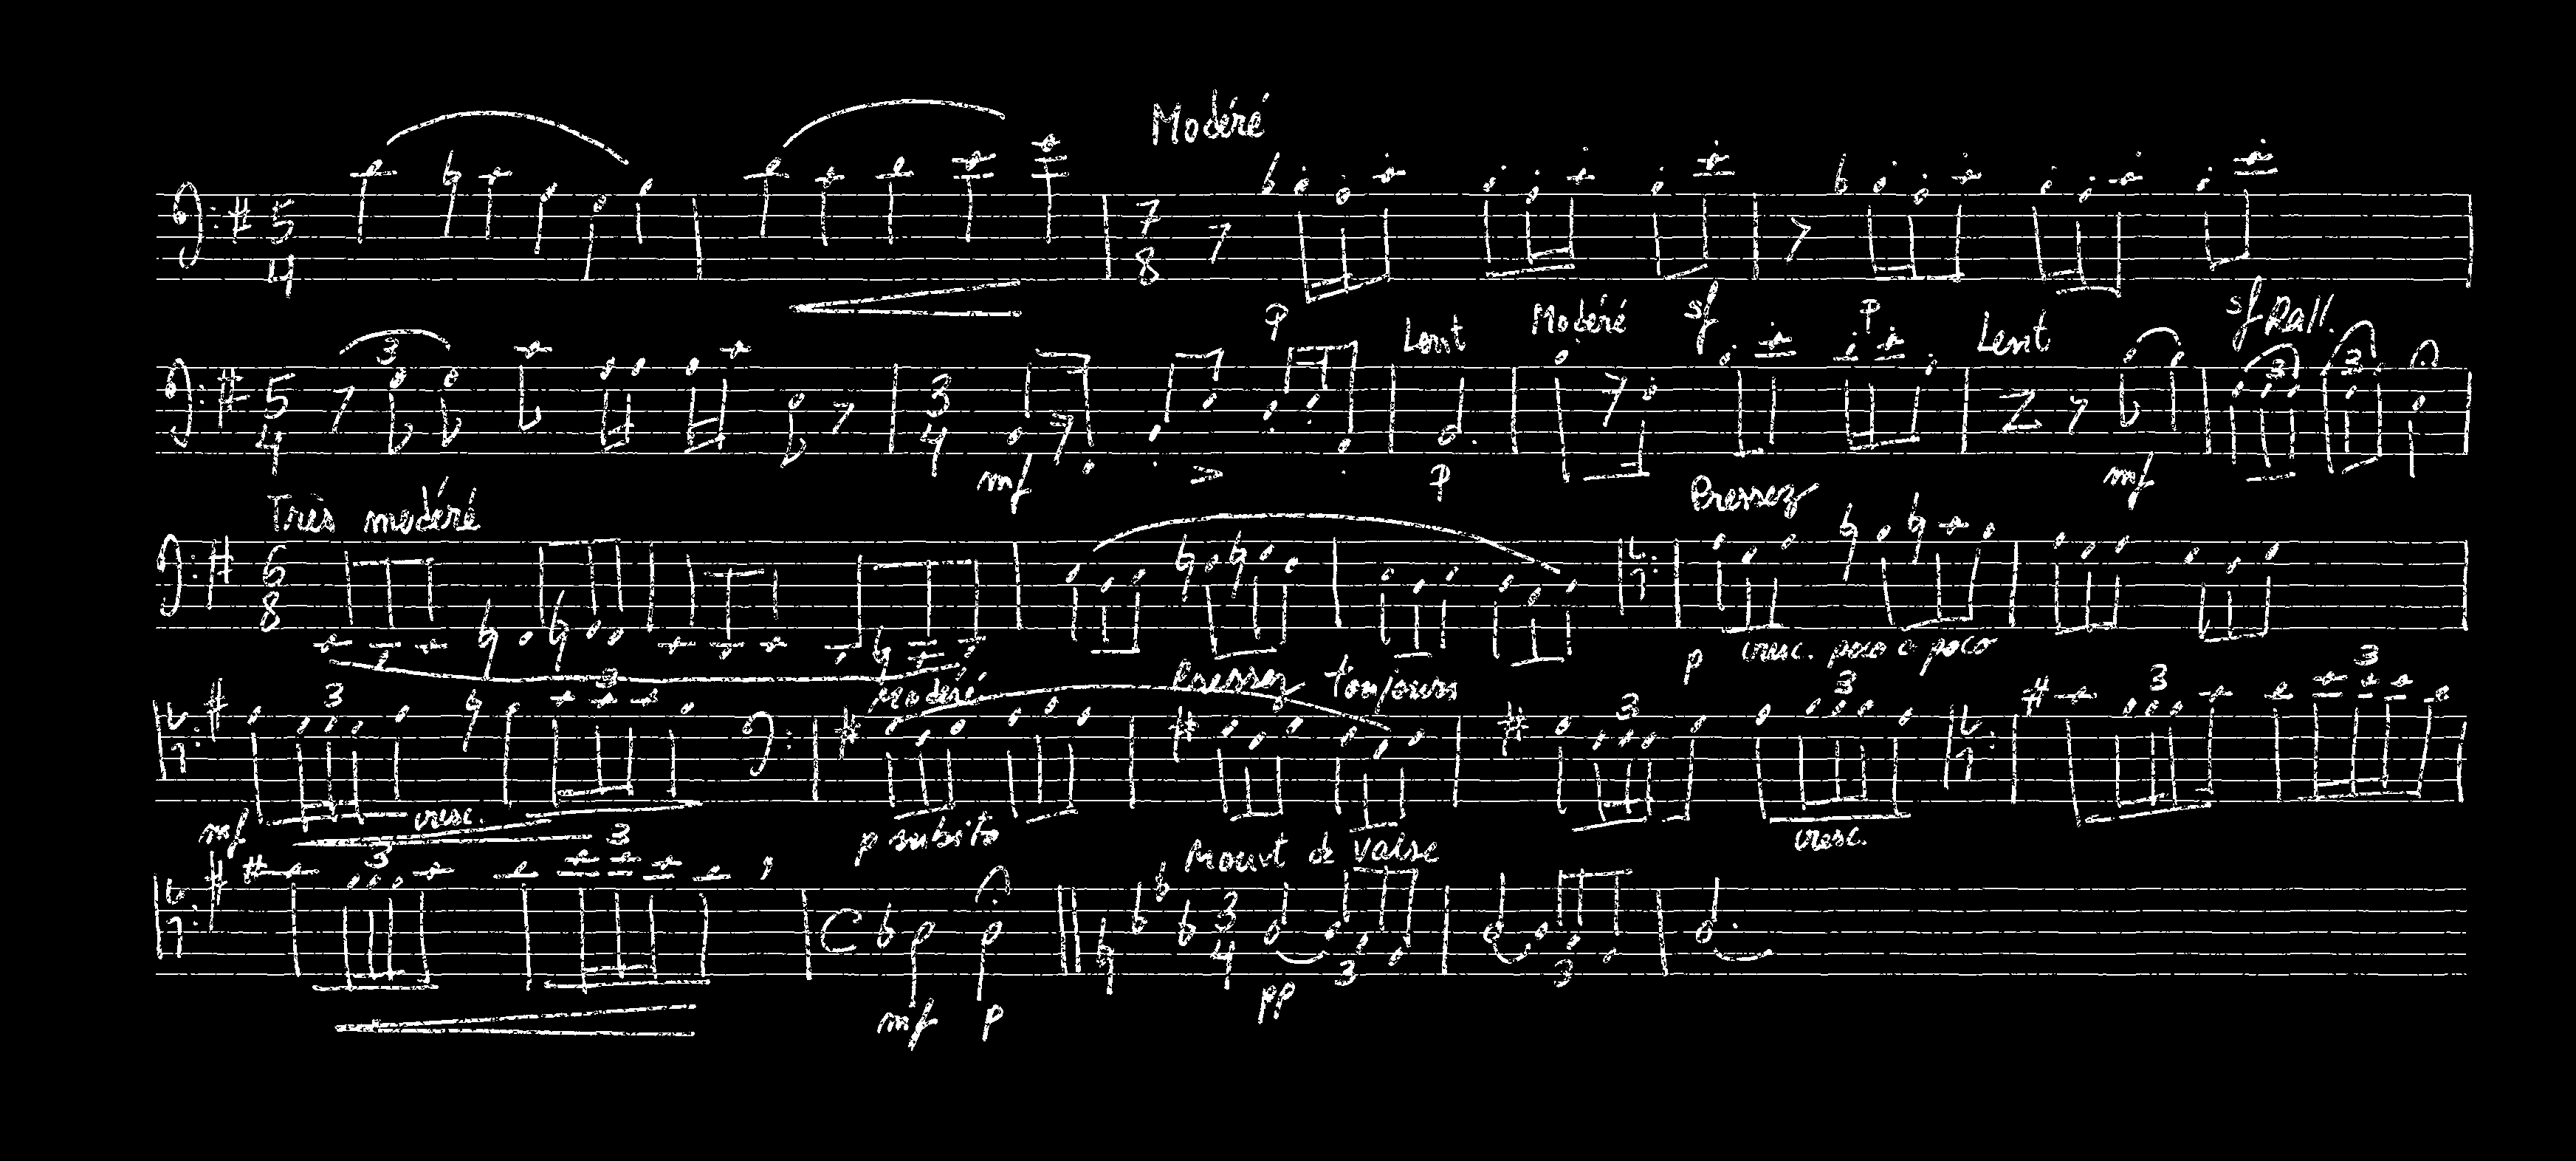 Modéré
5 4 7 8
p sf p sf
Lent Modéré Lent Rall.
3 3 3
5 4 3 4
mf p mf
Très modéré Pressez
6 8
p cresc. poco a poco
Modéré Pressez toujours
3 3 3 3 3 3
mf cresc. p subito cresc.
Mouvt de Valse
3 3
C 3 4
3 3
mf p pp